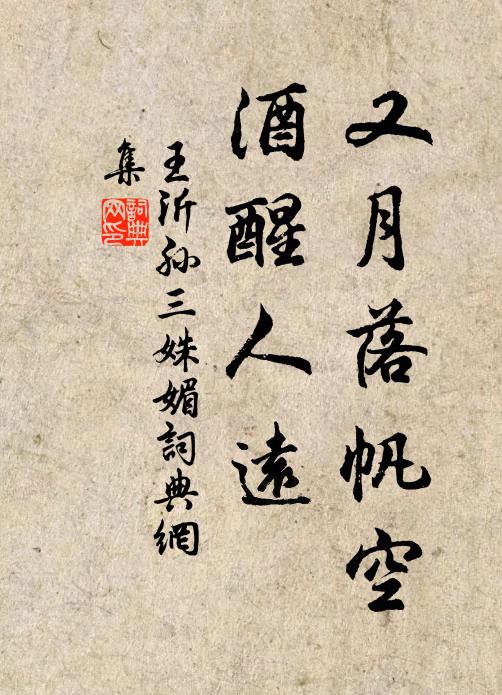 又月落帆空
酒醒人遠
王沂孫三姝媚詞典網
集
詞典
网印